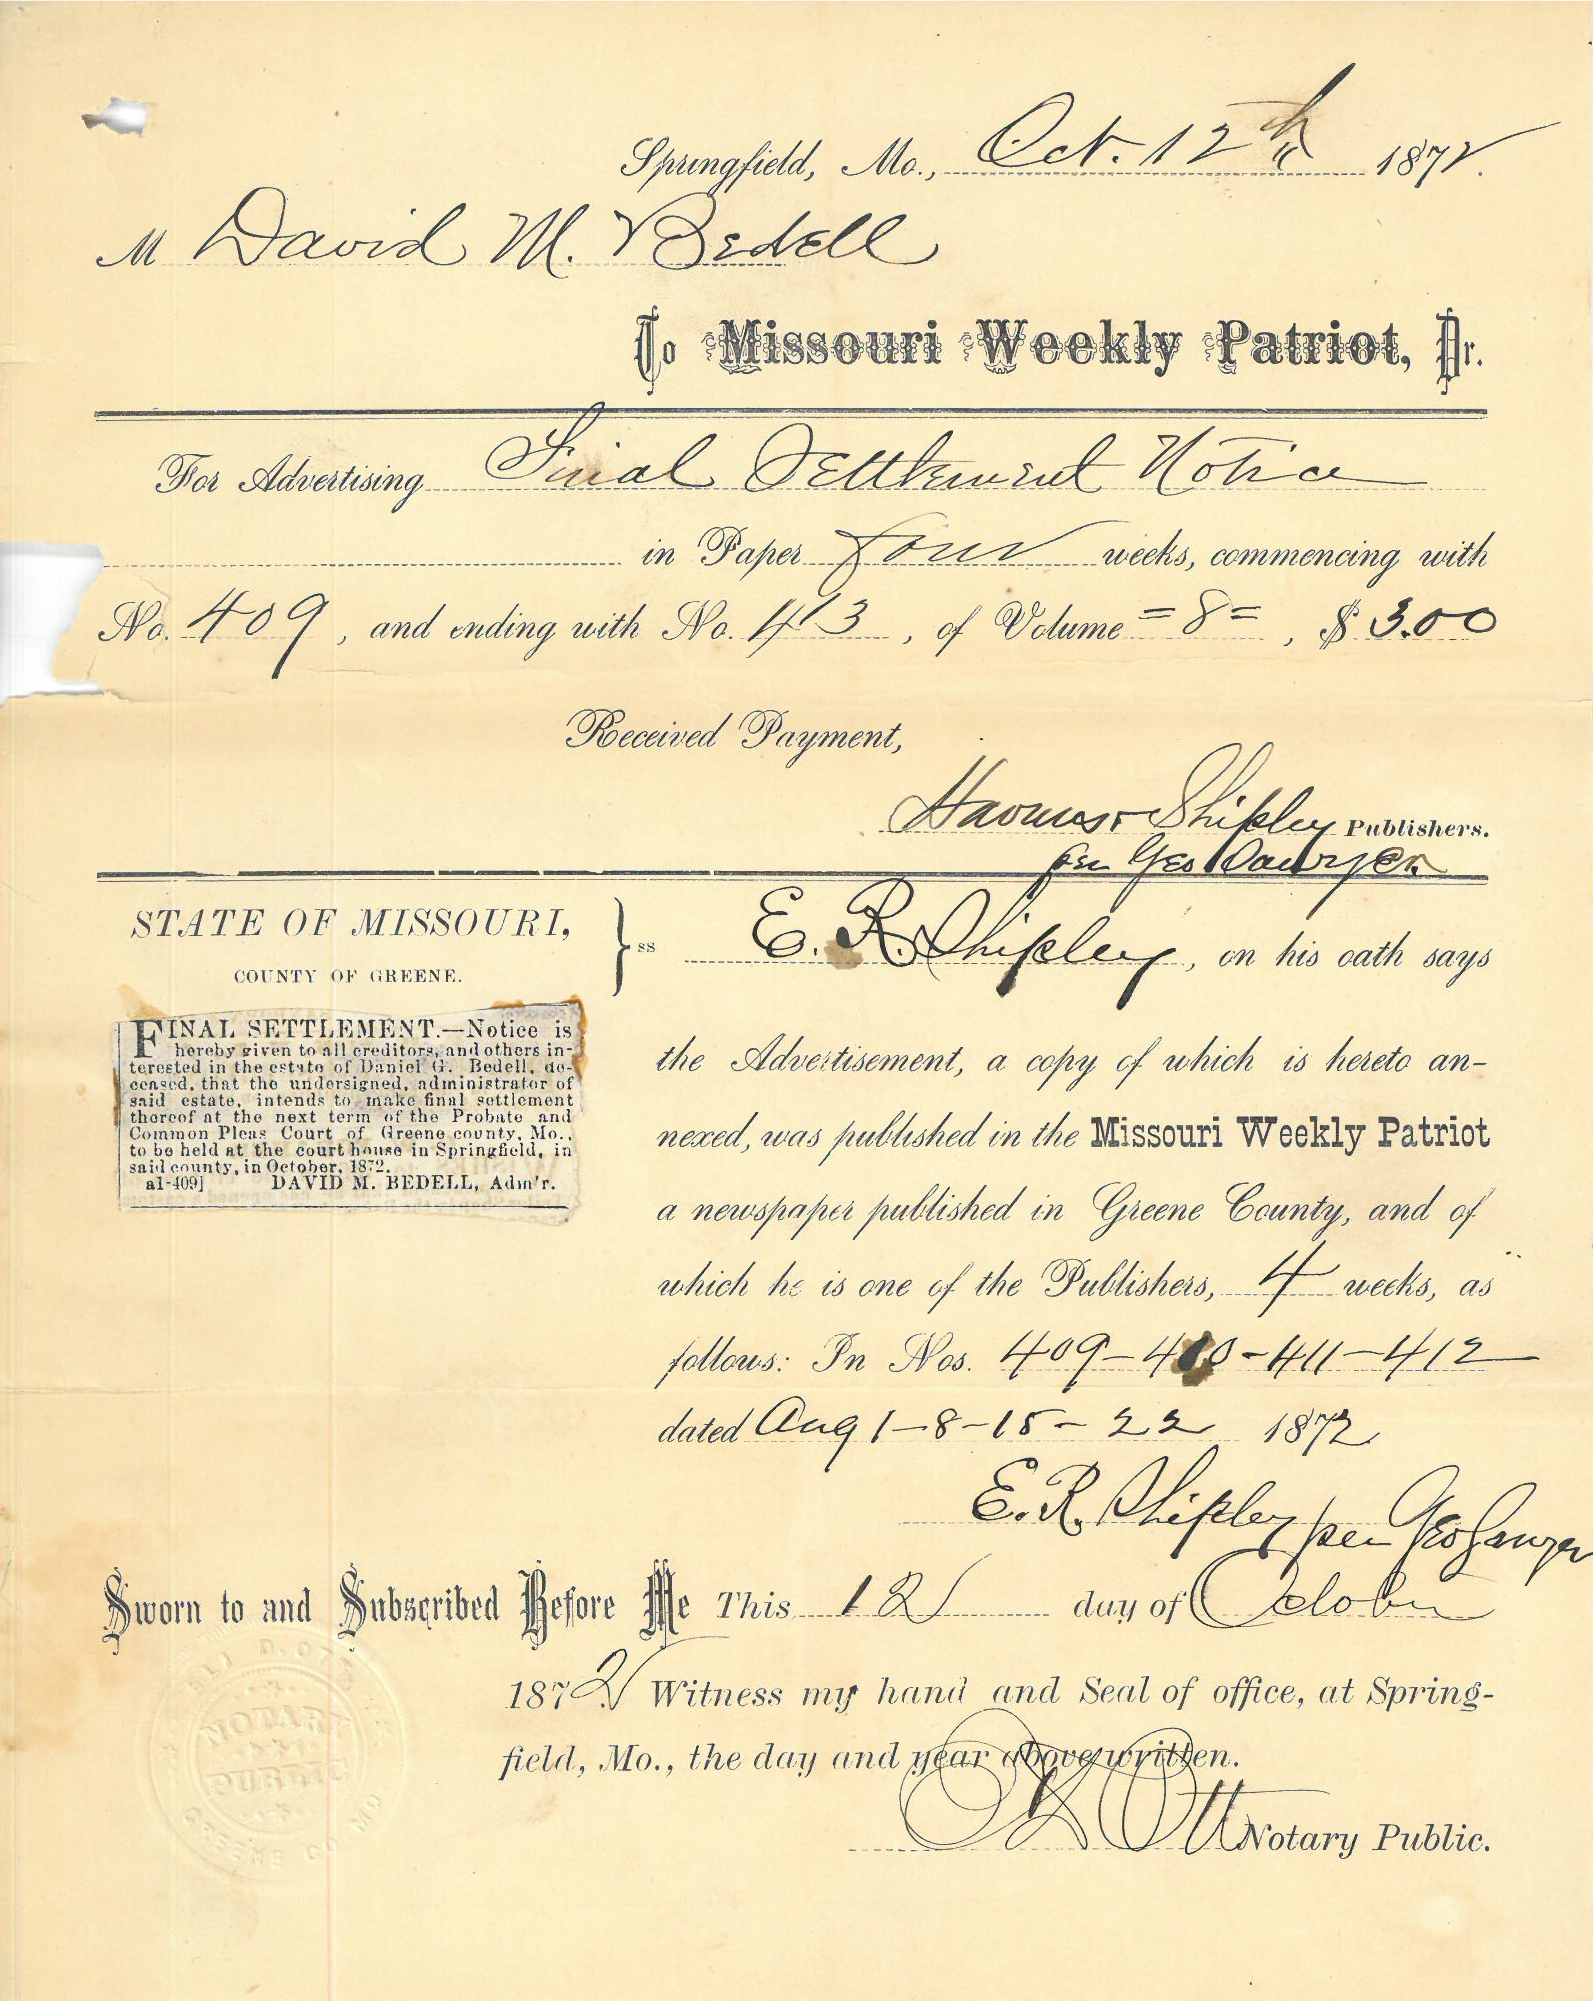 Springfield, Mo., Oct. 12th 1872.
M David M. Bedell
To Missouri Weekly Patriot, Dr.
For Advertising Final Settlement Notice
in Paper four weeks, commencing with
No. 409, and ending with No. 413, of Volume =8=, $ 3.00
Received Payment,
& Shipley Publishers.
per Geo Sawyer
STATE OF MISSOURI,
COUNTY OF GREENE.
} ss
E. R. Shipley, on his oath says
the Advertisement, a copy of which is hereto an-
nexed, was published in the Missouri Weekly Patriot
a newspaper published in Greene County, and of
which he is one of the Publishers, 4 weeks, as
follows: In Nos. 409-410-411-412
dated Aug 1-8-15-22 1872
E. R. Shipley per Geo Sawyer
FINAL SETTLEMENT.—Notice is
hereby given to all creditors, and others in-
terested in the estate of Daniel G. Bedell, de-
ceased, that the undersigned, administrator of
said estate, intends to make final settlement
thereof at the next term of the Probate and
Common Pleas Court of Greene county, Mo.,
to be held at the court house in Springfield, in
said county, in October, 1872.
a1-409] DAVID M. BEDELL, Adm'r.
Sworn to and Subscribed Before Me This 12 day of October
1872 Witness my hand and Seal of office, at Spring-
field, Mo., the day and year above written.
Ott Notary Public.
NOTARY
PUBLIC
GREENE CO MO